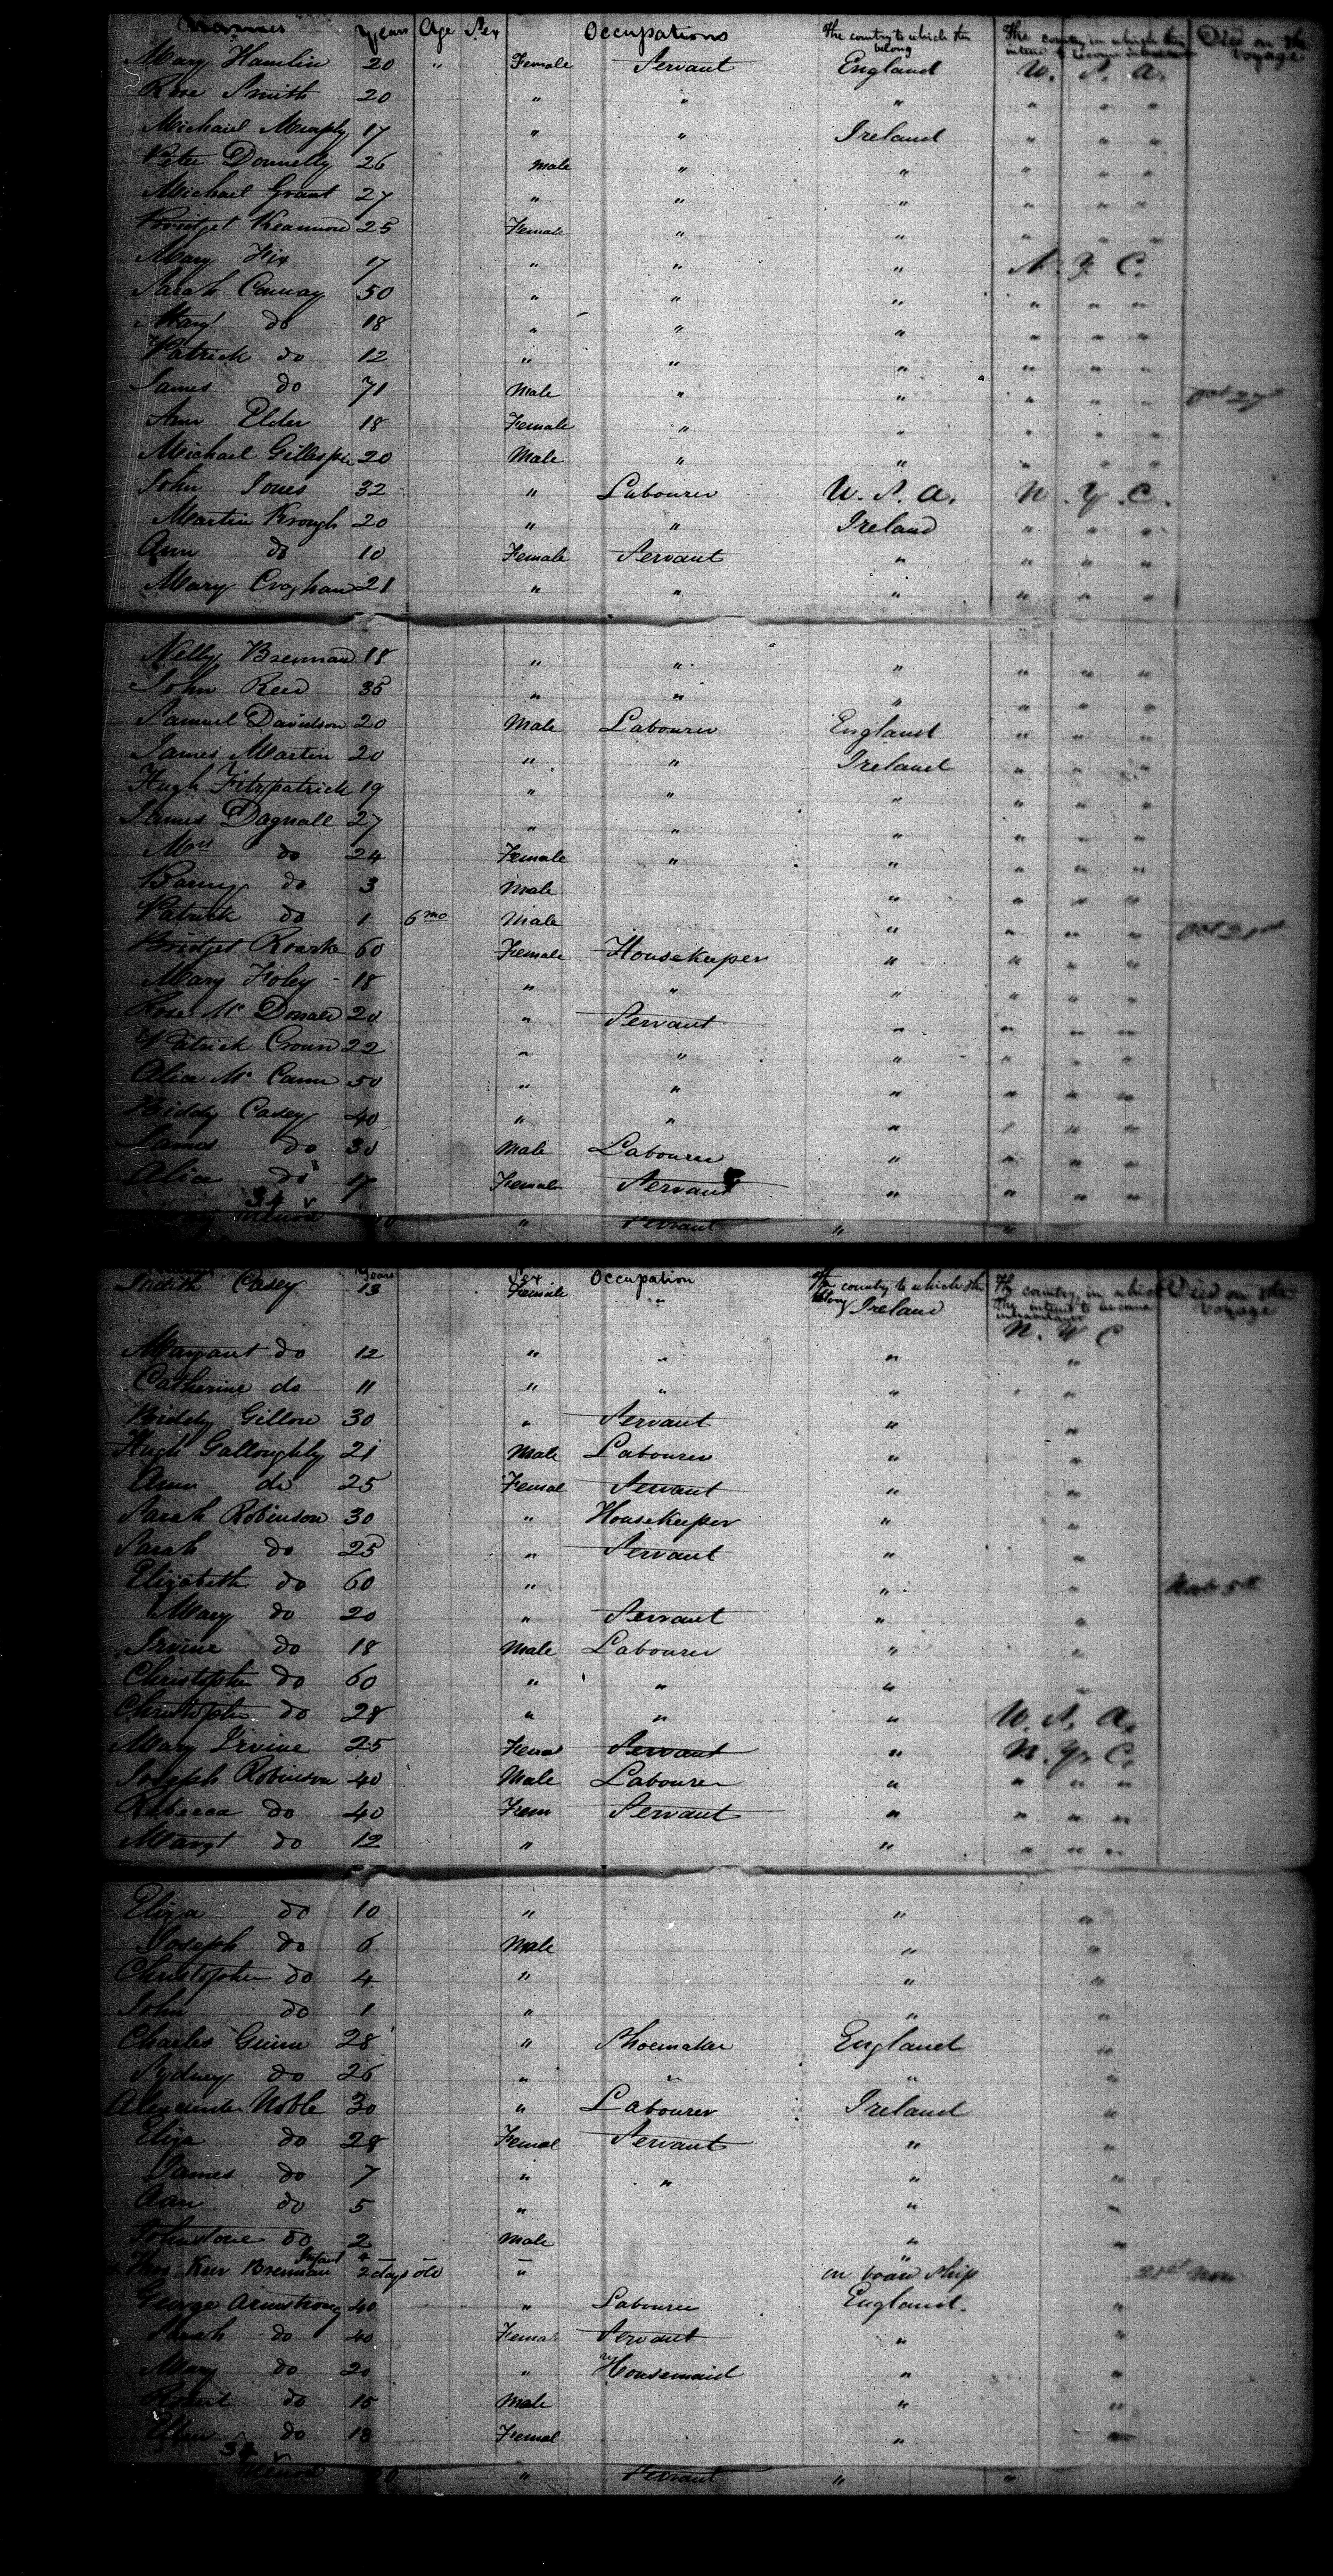 Names Years Age Sex Occupations The country to which they belong The country in which they intend to become inhabitants Died on the voyage
Mary Hamlin 20 " Female Servant England U. S. A.
Rose Smith 20 " " " " " "
Michael Murphy 17 " " Ireland " " "
Peter Donnelly 26 Male " " " " "
Michael Grant 27 " " " " " "
Bridget 25 Female " " " " "
Mary Fix 17 " " " N. Y. C.
Sarah Conway 50 " " " " " "
Mary do 18 " " " " " "
Patrick do 12 " " " " " "
James do 71 Male " " " " " Oct 27
Ann Elder 18 Female " " " " "
Michael Gillespie 20 Male " " " " "
John Jones 32 " Labourer U. S. A. N. Y. C.
Martin Krough 20 " " Ireland " " "
Ann do 10 Female Servant " " " "
Mary Croghan 21 " " " " " "
Nelly Brennan 18 " " " " " "
John Reed 35 " " " " " "
Samuel Davidson 20 Male Labourer England " " "
James Martin 20 " " Ireland " " "
Hugh Fitzpatrick 19 " " " " " "
James Dagnall 27 " " " " " "
Mrs do 24 Female " " " " "
Barny do 3 Male " " " "
Patrick do 1 6 mo Male " " " " Oct 21st
Bridget Roarke 60 Female Housekeeper " " " "
Mary Foley - 18 " " " " " "
Rose Mc Donald 20 " Servant " " " "
Patrick 22 " " " " " "
Alice Mc Cann 50 " " " " " "
Biddy Casey 40 " " " " " "
James do 30 Male Labourer " " " "
Alice do 17 Female Servant " " " "
34
" Servant " "
Years Sex Occupation The country to which they belong The country in which they intend to become inhabitants Died on the voyage
Judith Casey 13 Female " Ireland N. Y C
Margaret do 12 " " " "
Catherine do 11 " " " "
Briddy Gillon 30 " Servant " "
Hugh Galloughly 21 Male Labourer " "
Ann do 25 Femal Servant " "
Sarah Robinson 30 " Housekeeper " "
Sarah do 25 " Servant " "
Elizabeth do 60 " " " 5th
Mary do 20 " Servant " "
Irvine do 18 Male Labourer " "
Christopher do 60 " " " "
Christopher do 28 " " " U. S. A.
Mary Irvine 25 Femal Servant " N. Y. C.
Joseph Robinson 40 Male Labourer " " " "
Rebecca do 40 Fem Servant " " " "
Margt do 12 " " " " "
Eliza do 10 " " "
Joseph do 6 Male " "
Christopher do 4 " " "
John do 1 " " "
Charles Guinn 28 " Shoemaker England "
Sydney do 26 " " " "
Alexander Noble 30 " Labourer Ireland "
Eliza do 28 Femal Servant " "
James do 7 " " " "
Ann do 5 " " "
Johnstone do 2 Male " "
Thos Kerr Brennan Infant 2 days old " on board Ship 21st Nov
George Armstrong 40 " Labourer England "
Sarah do 40 Female Servant " "
Mary do 20 " Housemaid " "
Robert do 15 Male " "
Ann do 18 Femal "
34
" Servant " "